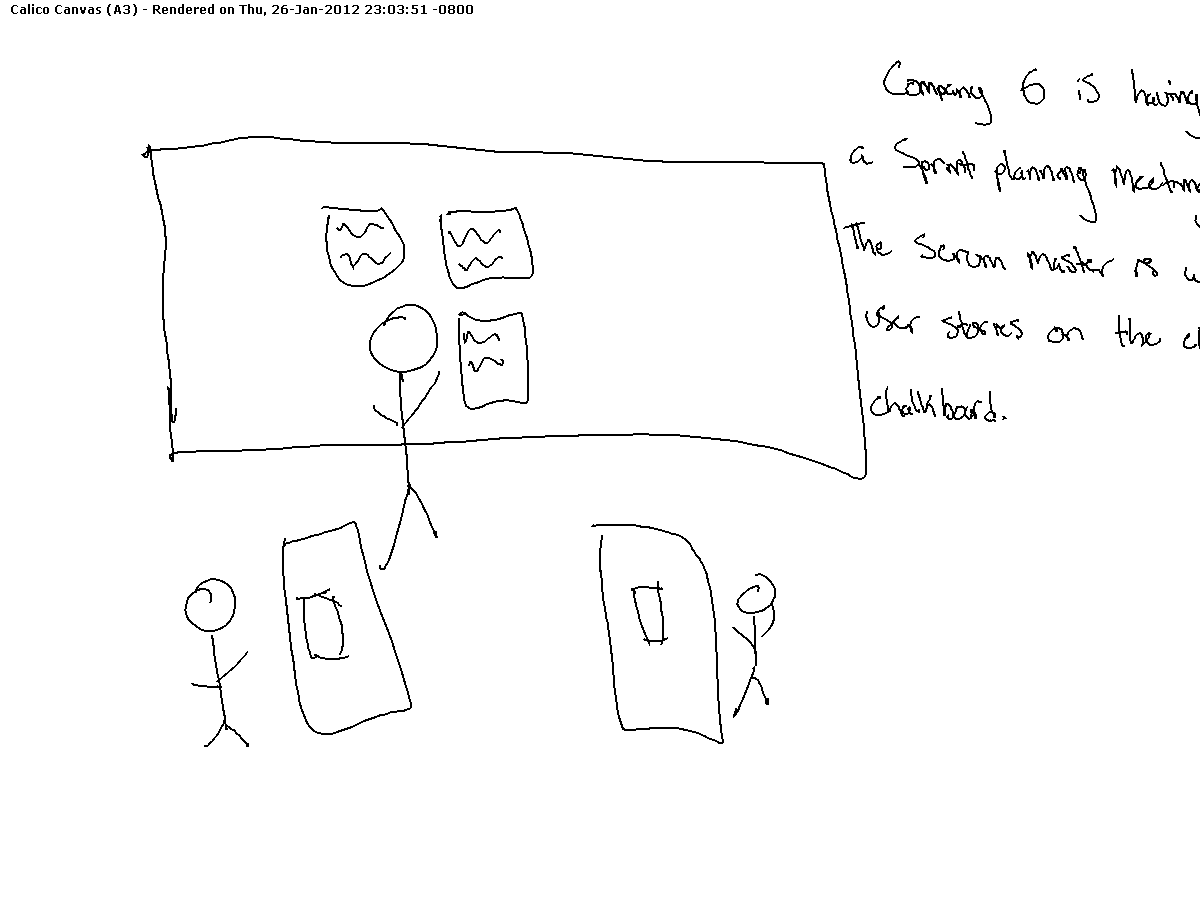 Calico Canvas (A3) - Rendered on Thu, 26-Jan-2012 23:03:51 -0800
Company 6 is having
a Sprint planning meeting
The Scrum master is
user stories on the
chalkboard.